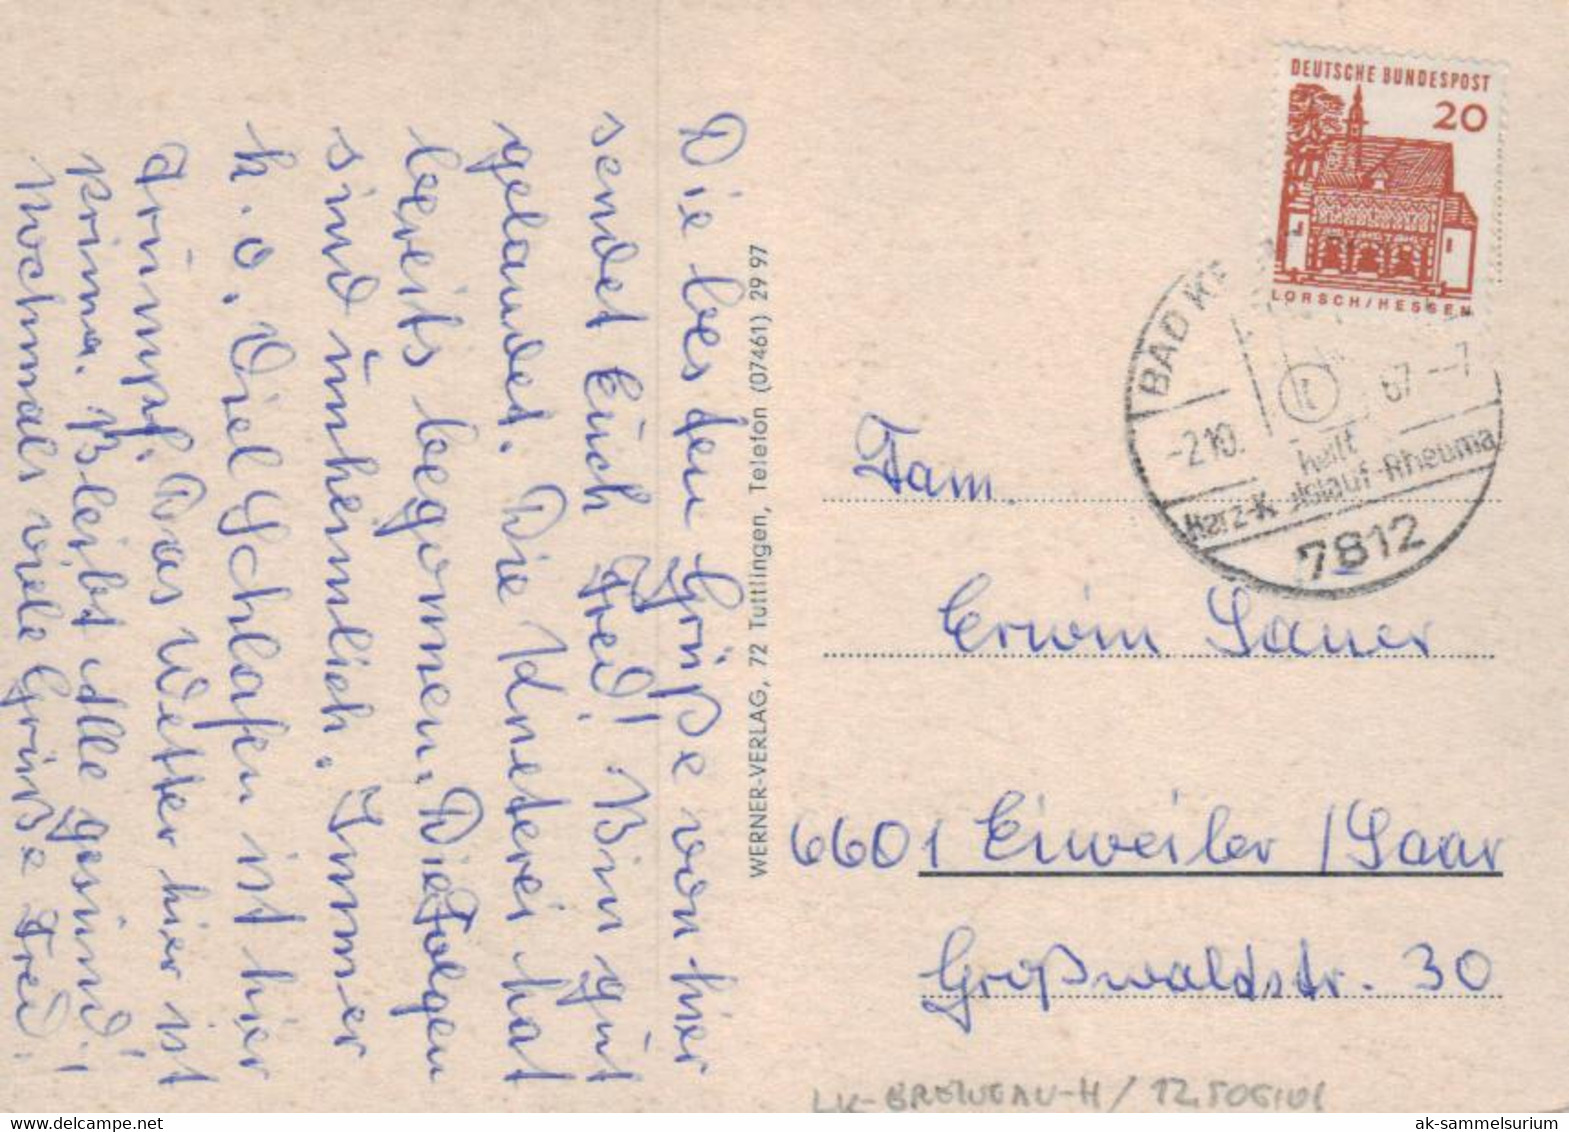 Die besten Grüße von hier
sendet Euch Fred! Bin gut
gelandet. Die Kneterei hat
bereits begonnen. Die Folgen
sind unheimlich. Immer
k.o. Viel Schlafen ist hier
Trumpf. Das Wetter hier ist
prima. Bleibt Alle gesund!
Nochmals viele Grüße Fred!
WERNER-VERLAG, 72 Tuttlingen, Telefon (07461) 29 97
DEUTSCHE BUNDESPOST
20
LORSCH/HESSEN
BAD KR
-2.10. 67--7
heilt
Herz-K islauf-Rheuma
7812
Fam.
Erwin Sauer
6601 Eiweiler / Saar
Großwaldstr. 30
LK-BREISGAU-H / 12.506.101
ak-sammelsurium